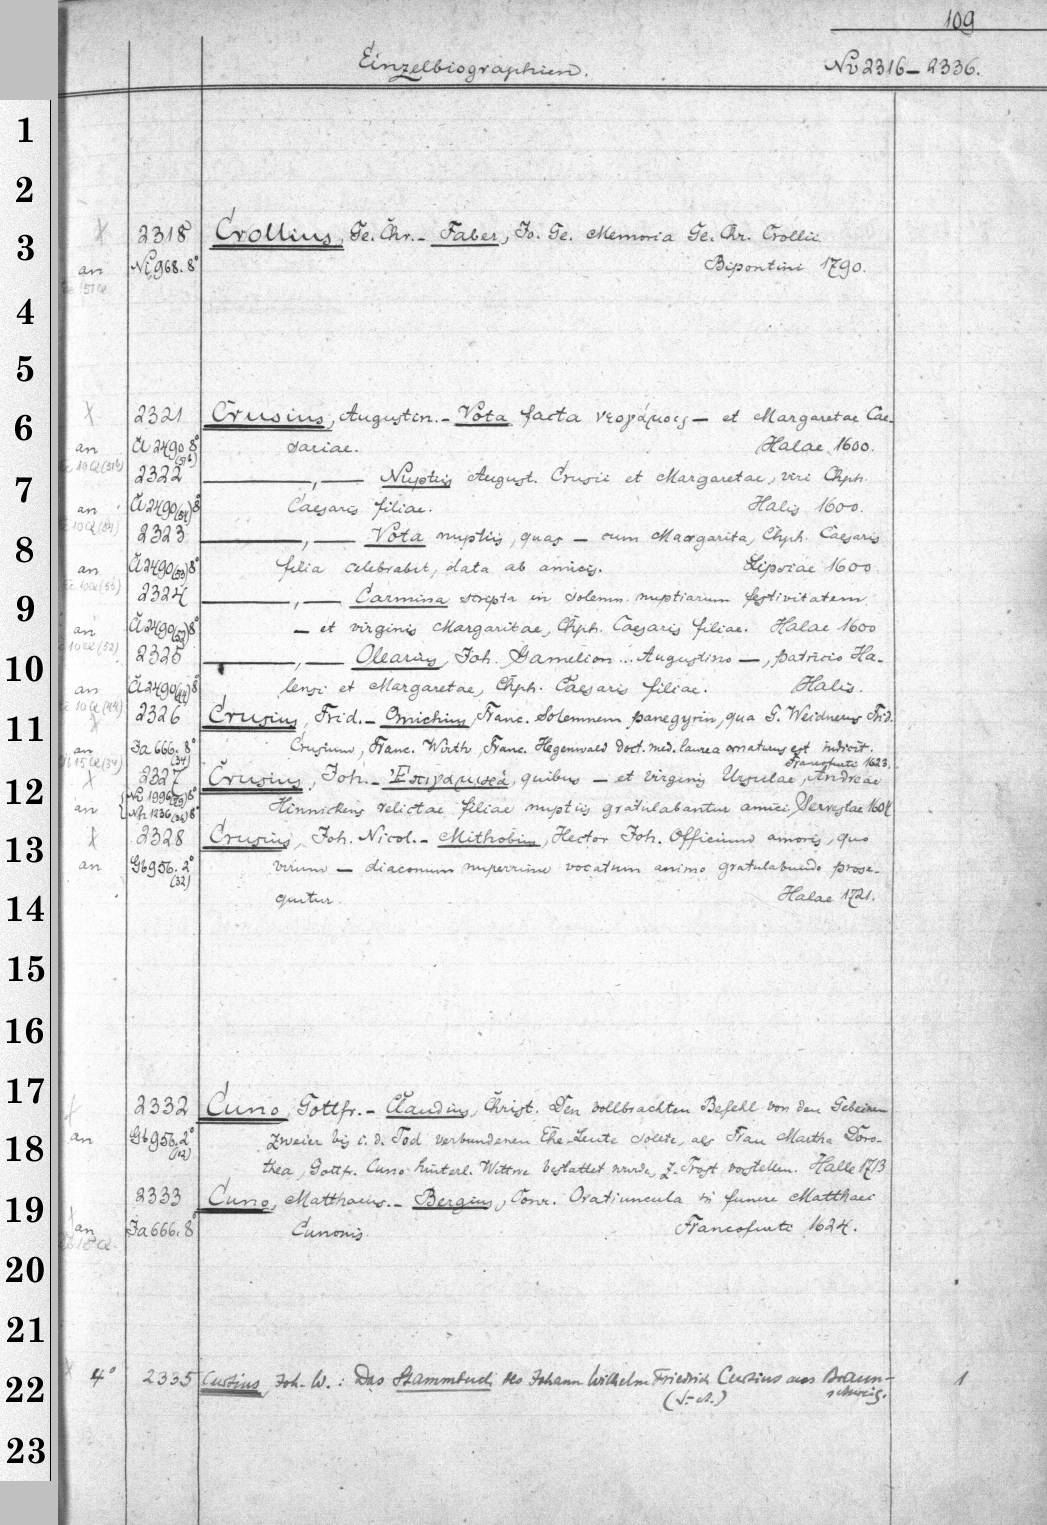 109
Einzelbiographien. No 2316 – 2336.
1
2
3 2318 Crollius, Ge. Chr. – Faber, Jo. Ge. Memoria Ge. Chr. Crollii
an Ni 968. 8° Bipontini 1790.
4
5
6 2321 Crusius, Augustin. – Vota facta νεογάμοις – et Margaretae Cae-
an Ci 2490 8° sariae. Halae 1600.
7 2322 ———, — Nuptiis August. Crusii et Margaretae, viri Chph.
an Ci 2490 (54) 8° Caesaris filiae. Halis 1600.
8 2323 ———, — Vota nuptiis, quas – cum Margarita, Chph. Caesaris
an Ci 2490 (53) 8° filia celebrabit, data ab amicis. Lipsiae 1600.
9 2324 ———, — Carmina scripta in solemn. nuptiarum festivitatem
an Ci 2490 (52) 8° – et virginis Margaritae, Chph. Caesaris filiae. Halae 1600
10 2325 ———, — Olearius, Joh. Gamelion ... Augustino –, patricio Ha-
an Ci 2490 (44) 8° lensi et Margaretae, Chph. Caesaris filiae. Halis.
11 2326 Crusius, Frid. – Omichius, Franc. Solemnem panegyrin, qua G. Weidnerus Frid.
an Ja 666. 8° (34) Crusium, Franc. Wirth, Franc. Hegenwald doct. med. laurea ornaturus est indicit.
Francofurti 1623.
12 2327 Crusius, Joh. – Ἐπιγαμικά, quibus – et virginis Ursulae, Andreae
an Nh 1236 (36) 8° Hinnickens relictae filiae nuptiis gratulabantur amici. Servestae 1604
13 2328 Crusius, Joh. Nicol. – Mithobius, Hector Joh. Officium amoris, quo
an Gb 956. 2° (32) virum – diaconum nuperrime vocatum animo gratulabundo prose-
14 quitur. Halae 1721.
15
16
17 2332 Cuno, Gottfr. – Claudius, Christ. Den vollbrachten Befehl von den Gebeinen
18 an Gb 956. 2° (12) zweier bis i. d. Tod verbundenen Ehe-Leute solte, als Frau Martha Doro-
thea, Gottfr. Cuno hinterl. Wittwe bestattet wurde, z. Trost vorstellen. Halle 1713
19 2333 Cuno, Matthaeus. – Bergius, Conr. Oratiuncula in funere Matthaei
an Ja 666. 8° Cunonis. Francofurti 1624.
20
21
22 4° 2335 Curtius, Joh. W.: Das Stammbuch des Johann Wilhelm Friedrich Curtius aus Braun- 1
schweig.
23